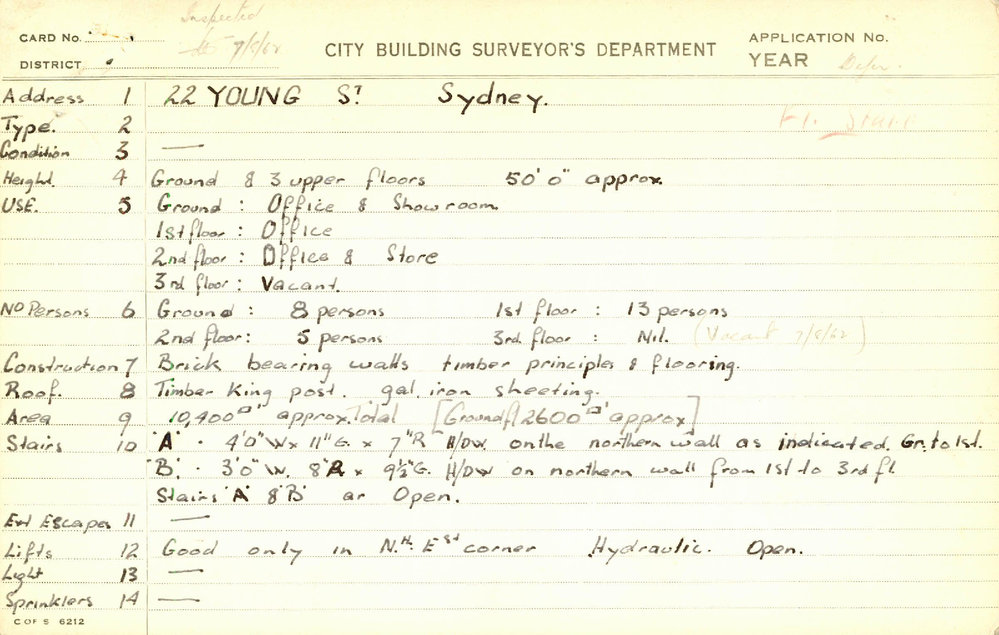 Inspected
7/8/62
CARD No.
DISTRICT
CITY BUILDING SURVEYOR'S DEPARTMENT
APPLICATION No.
YEAR
Address 1 22 YOUNG ST. Sydney.
Type. 2
Condition 3 —
Height. 4 Ground & 3 upper floors 50' 0" approx.
USE. 5 Ground : Office & Showroom.
1st floor : Office
2nd floor : Office & Store
3rd floor : Vacant.
No Persons 6 Ground : 8 persons 1st floor : 13 persons
2nd floor : 5 persons 3rd floor : Nil. (Vacant 7/8/62)
Construction 7 Brick bearing walls timber principles & flooring.
Roof. 8 Timber King post. gal. iron sheeting.
Area 9 10,400□' approx. Total [Ground fl 2600□' approx]
Stairs 10 'A' . 4'0"W x 11"G. x 7"R H/DW. on the northern wall as indicated. Gr. to 1st.
'B' . 3'0"W. 8"R x 9½"G. H/DW on northern wall from 1st to 3rd fl.
Stairs 'A' & 'B' ar Open.
Ext Escapes 11 —
Lifts 12 Good only in N.th. Est corner Hydraulic. Open.
Light 13 —
Sprinklers 14 —
C OF S 6212